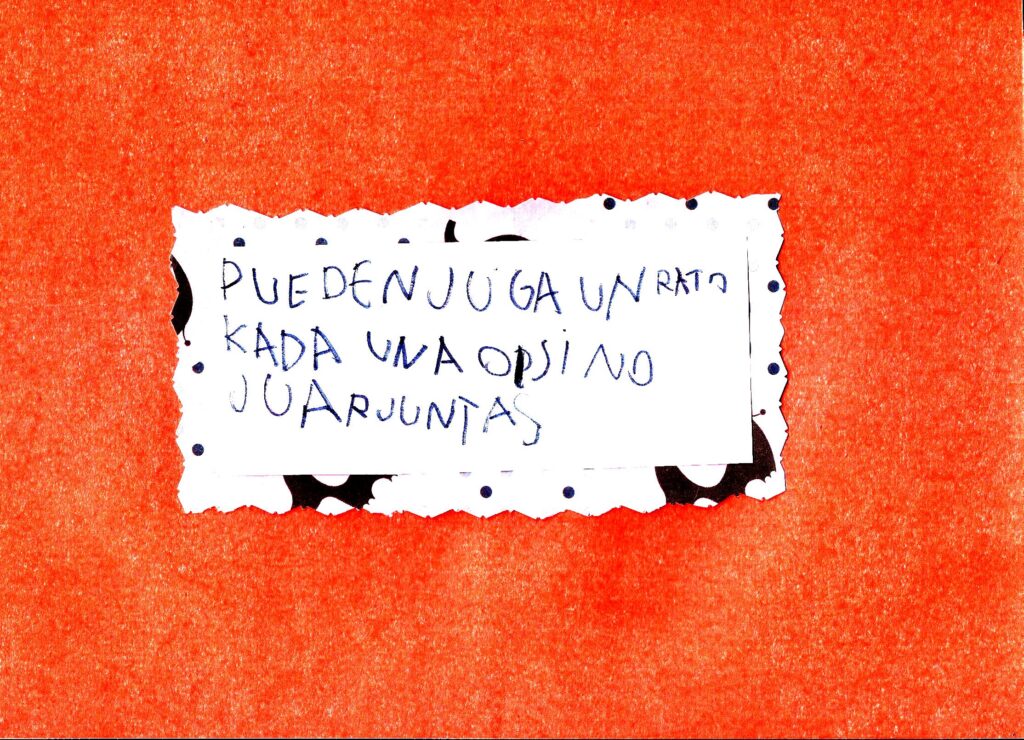 PUEDEN JUGA UN RATO
KADA UNA O SI NO
JUAR JUNTAS